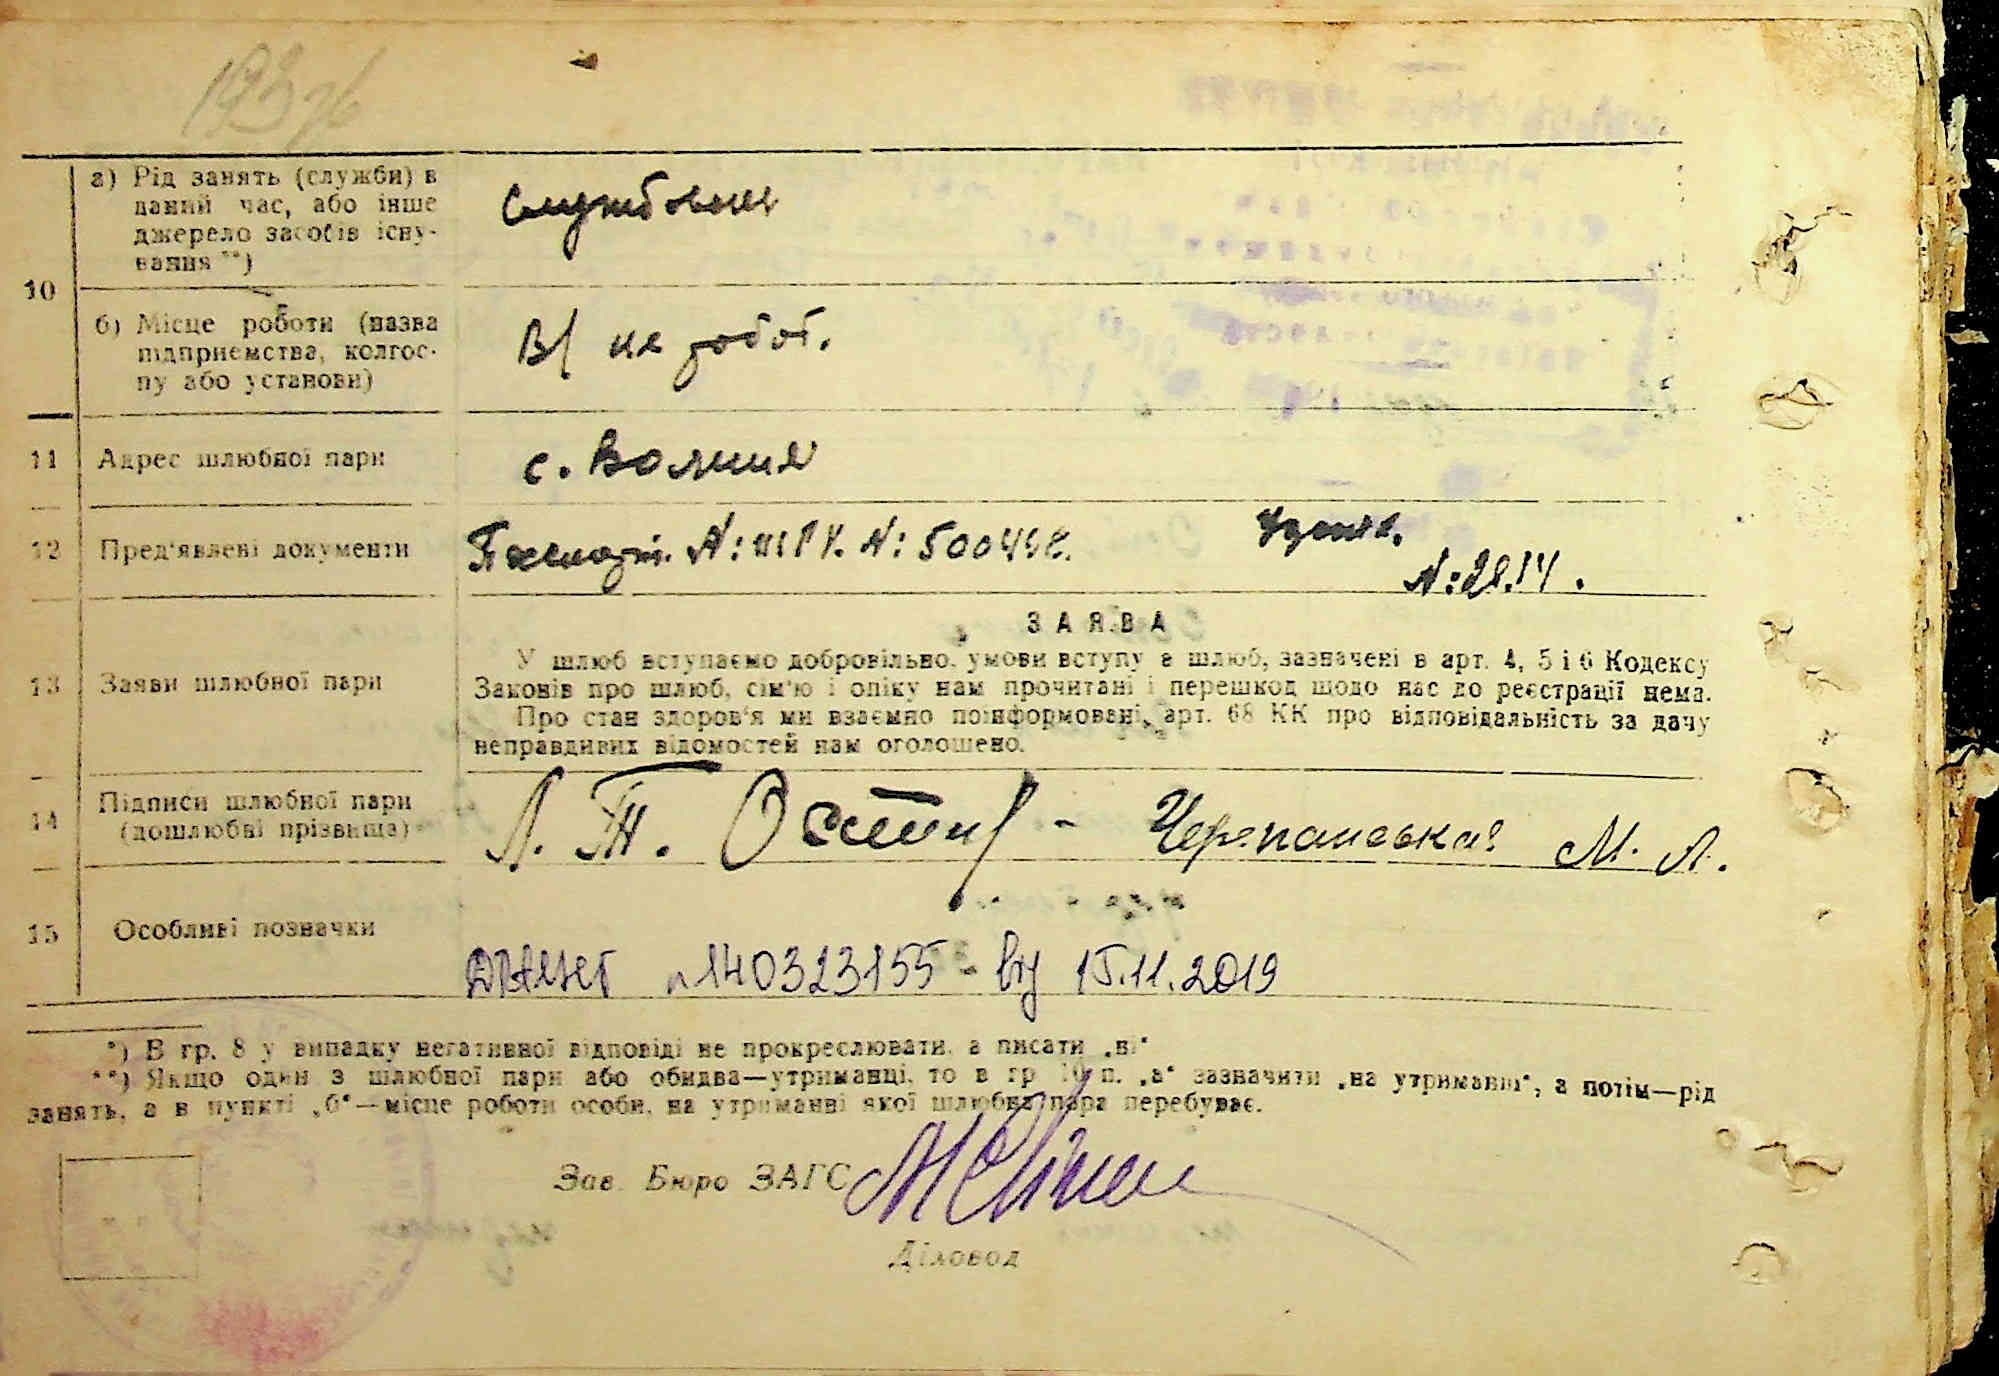 а) Рід занять (служби) в
даний час, або інше
джерело засобів існу-
вання **)
службовець
10
б) Місце роботи (назва
підприємства, колгос-
пу або установи)
не робот.
11 Адрес шлюбної пари
с. Волиця
12 Пред'явлені документи
N:
N: 28.14.
ЗАЯВА
13 Заяви шлюбної пари
У шлюб вступаємо добровільно, умови вступу в шлюб, зазначені в арт. 4, 5 і 6 Кодексу
Законів про шлюб, сім'ю і опіку нам прочитані і перешкод щодо нас до реєстрації нема.
Про стан здоров'я ми взаємно поінформовані, арт. 68 КК про відповідальність за дачу
неправдивих відомостей нам оголошено.
14 Підписи шлюбної пари
(дошлюбні прізвища)
Черпанська М. Л.
15 Особливі позначки
140323155 - від 15.11.2019
*) В гр. 8 у випадку негативної відповіді не прокреслювати, а писати „ні“
**) Якщо один з шлюбної пари або обидва—утриманці, то в гр 10 п. „а“ зазначити „на утриманні“, а потім—рід
занять, а в пункті „б“—місце роботи особи, на утриманні якої шлюбна пара перебуває.
Зав. Бюро ЗАГС
Діловод